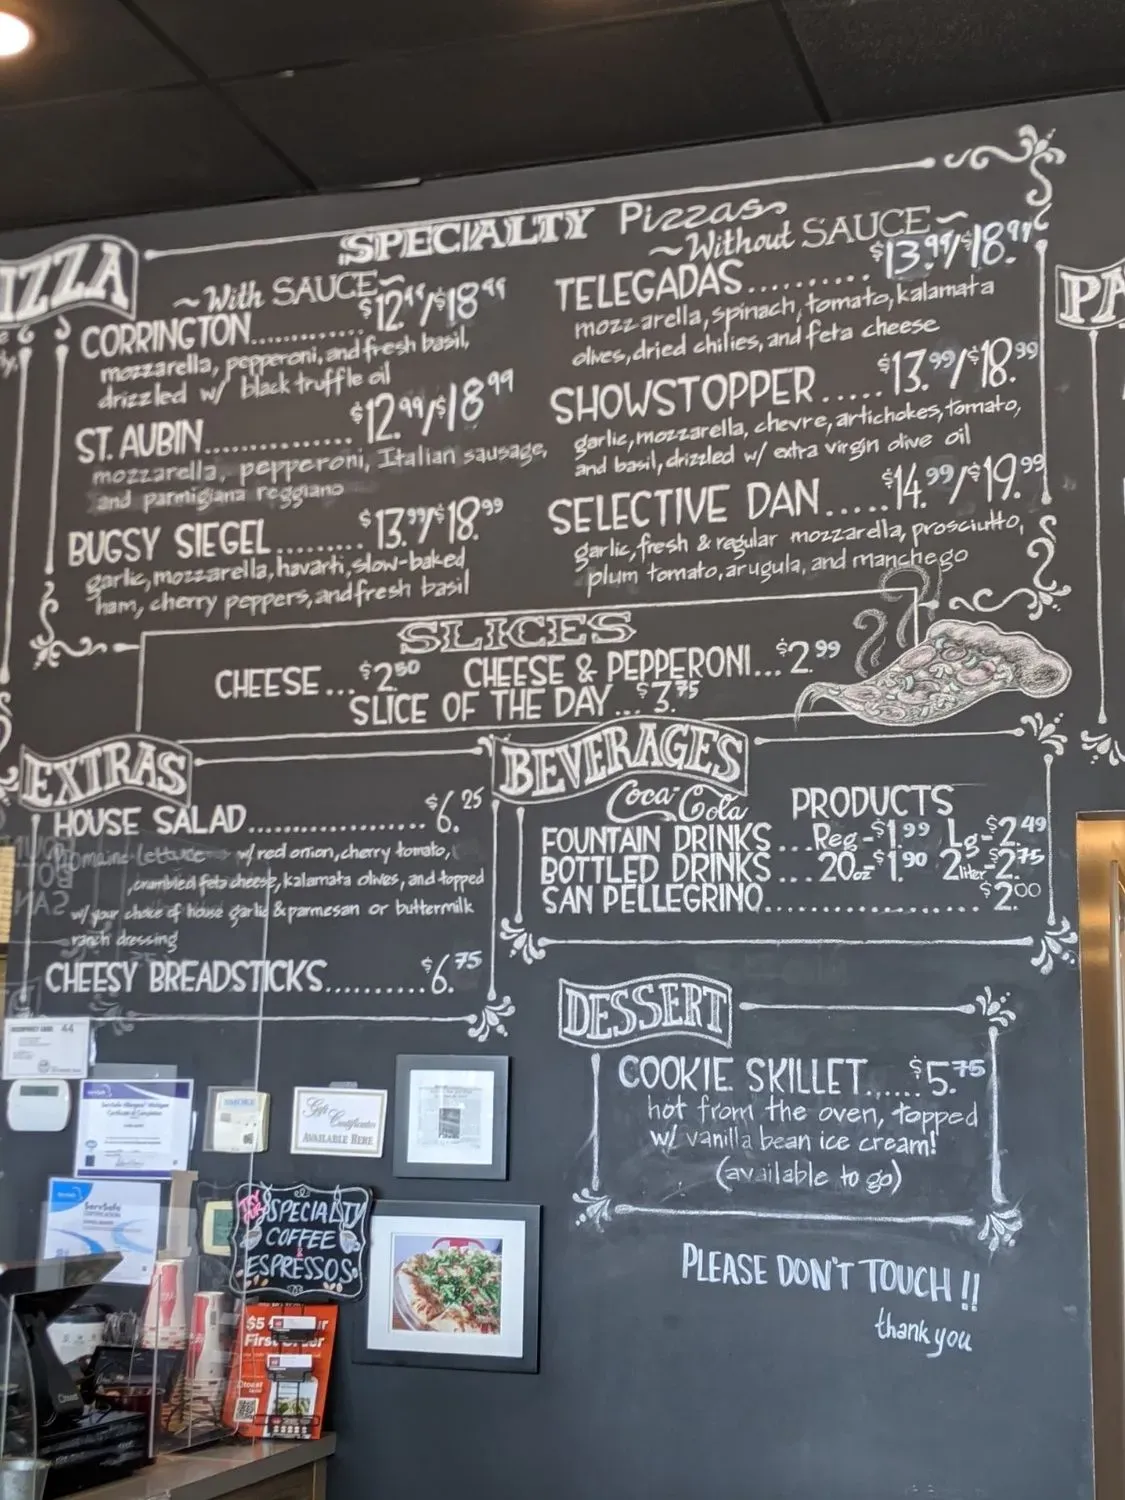 IZZA
SPECIALTY Pizzas
~With SAUCE~
CORRINGTON............ $12.99/$18.99
mozzarella, pepperoni, and fresh basil,
drizzled w/ black truffle oil
ST. AUBIN............... $12.99/$18.99
mozzarella, pepperoni, Italian sausage,
and parmigiana reggiano
BUGSY SIEGEL......... $13.99/$18.99
garlic, mozzarella, havarti, slow-baked
ham, cherry peppers, and fresh basil
~Without SAUCE~
TELEGADAS......... $13.99/$18.99
mozzarella, spinach, tomato, kalamata
olives, dried chilies, and feta cheese
SHOWSTOPPER..... $13.99/$18.99
garlic, mozzarella, chevre, artichokes, tomato,
and basil, drizzled w/ extra virgin olive oil
SELECTIVE DAN..... $14.99/$19.99
garlic, fresh & regular mozzarella, prosciutto,
plum tomato, arugula, and manchego
PA
SLICES
CHEESE... $2.50 CHEESE & PEPPERONI... $2.99
SLICE OF THE DAY... $3.75
EXTRAS
HOUSE SALAD.................. $6.25
romaine lettuce w/ red onion, cherry tomato,
crumbled feta cheese, kalamata olives, and topped
w/ your choice of house garlic & parmesan or buttermilk
ranch dressing
CHEESY BREADSTICKS.......... $6.75
BEVERAGES
Coca-Cola PRODUCTS
FOUNTAIN DRINKS... Reg-$1.99 Lg-$2.49
BOTTLED DRINKS... 20oz-$1.90 2liter-$2.75
SAN PELLEGRINO.................. $2.00
DESSERT
COOKIE SKILLET...... $5.75
hot from the oven, topped
w/ vanilla bean ice cream!
(available to go)
PLEASE DON'T TOUCH!!
thank you
Gift Certificates
AVAILABLE HERE
ServSafe
CERTIFICATION
TRY OUR
SPECIALTY
COFFEE
&
ESPRESSOS
$5
First Order